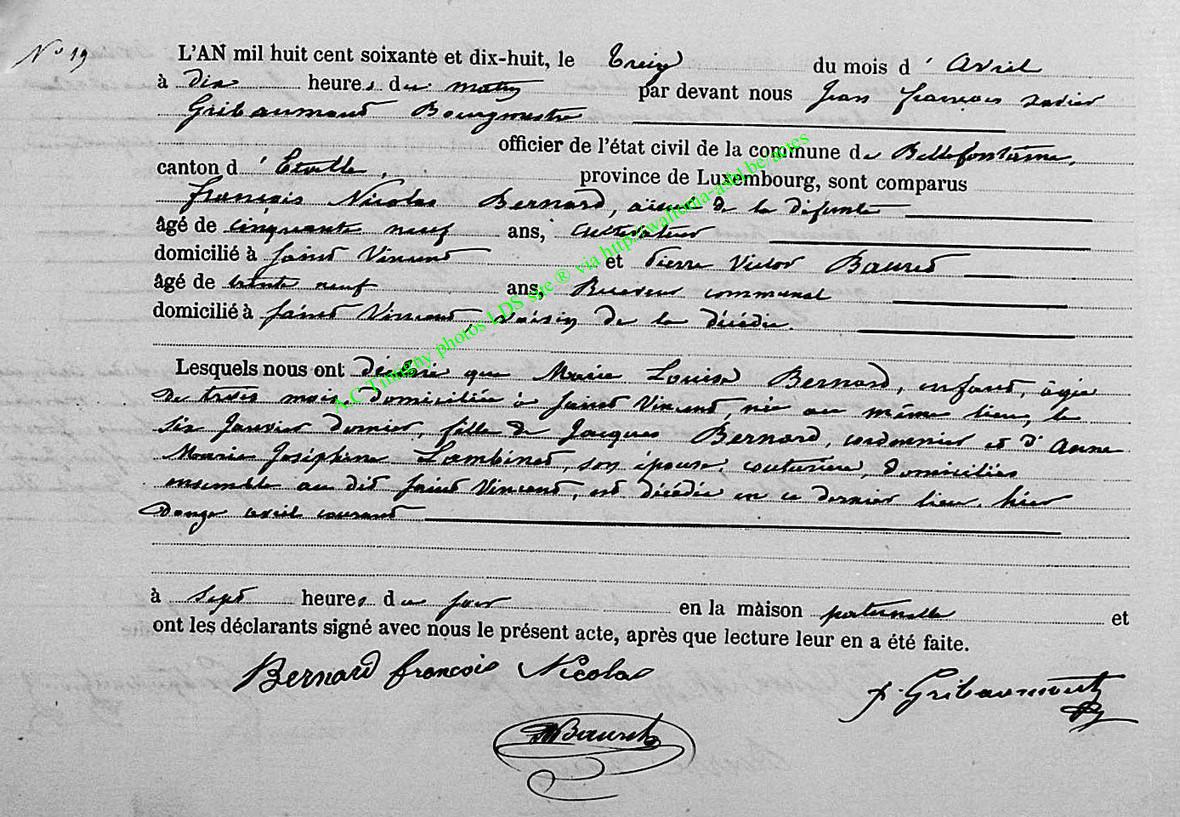 N° 19
L'AN mil huit cent soixante et dix-huit, le treize du mois d'avril
à dix heures du matin par devant nous Jean François Xavier
Gribaumont Bourgmestre
officier de l'état civil de la commune de Bellefontaine,
canton d'Etalle, province de Luxembourg, sont comparus
François Nicolas Bernard, aïeul de la défunte
âgé de cinquante neuf ans, cultivateur
domicilié à Saint Vincent et Pierre Victor Bauret
âgé de trente neuf ans, Receveur communal
domicilié à Saint Vincent, voisin de la décédée
Lesquels nous ont déclaré que Marie Louise Bernard, enfant, âgée
de trois mois, domiciliée à Saint Vincent, née au même lieu, le
six Janvier dernier, fille de Jacques Bernard, cordonnier et d'Anne
Marie Joséphine Lambinet, son épouse, couturière, domiciliés
ensemble au dit Saint Vincent, est décédée en ce dernier lieu, hier
Douze avril courant
à Sept heures du soir en la maison paternelle et
ont les déclarants signé avec nous le présent acte, après que lecture leur en a été faite.
Bernard françois Nicolas
Gribaumont
Bauret
A.C Tintigny photos LDS site ® via http://wallonia-asbl.be/actes